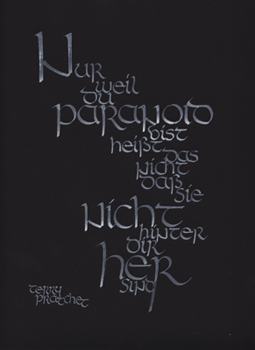 Nur
weil
du
paranoid
bist
heißt
das
nicht
daß
sie
nicht
hinter
dir
her
sind
terry
pratchet